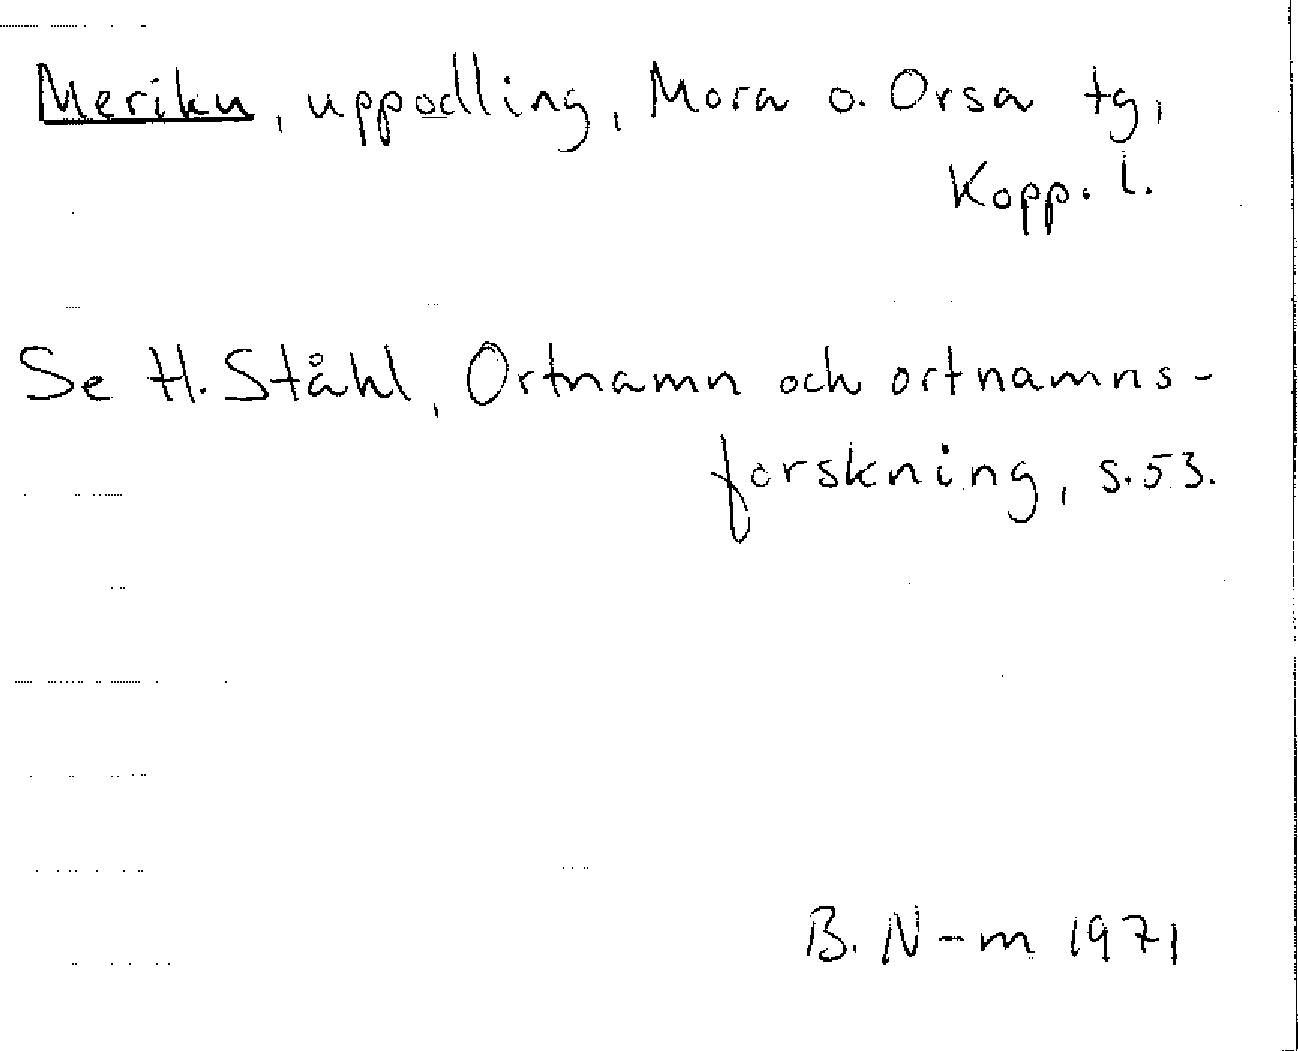 Meriku, uppodling, Mora o. Orsa tg,
Kopp. l.
Se H. Ståhl, Ortnamn och ortnamns-
forskning, s. 53.
B. N-m 1971